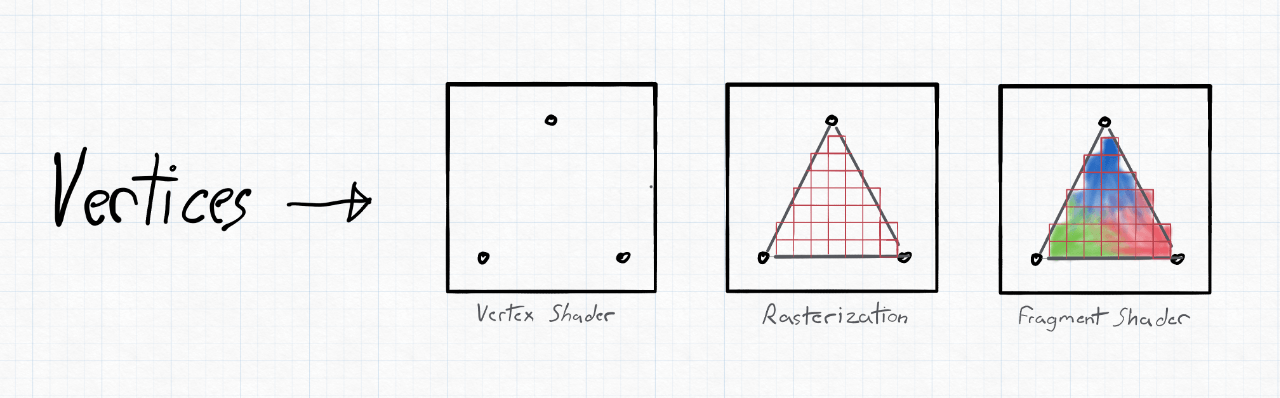 Vertices
Vertex Shader
Rasterization
Fragment Shader